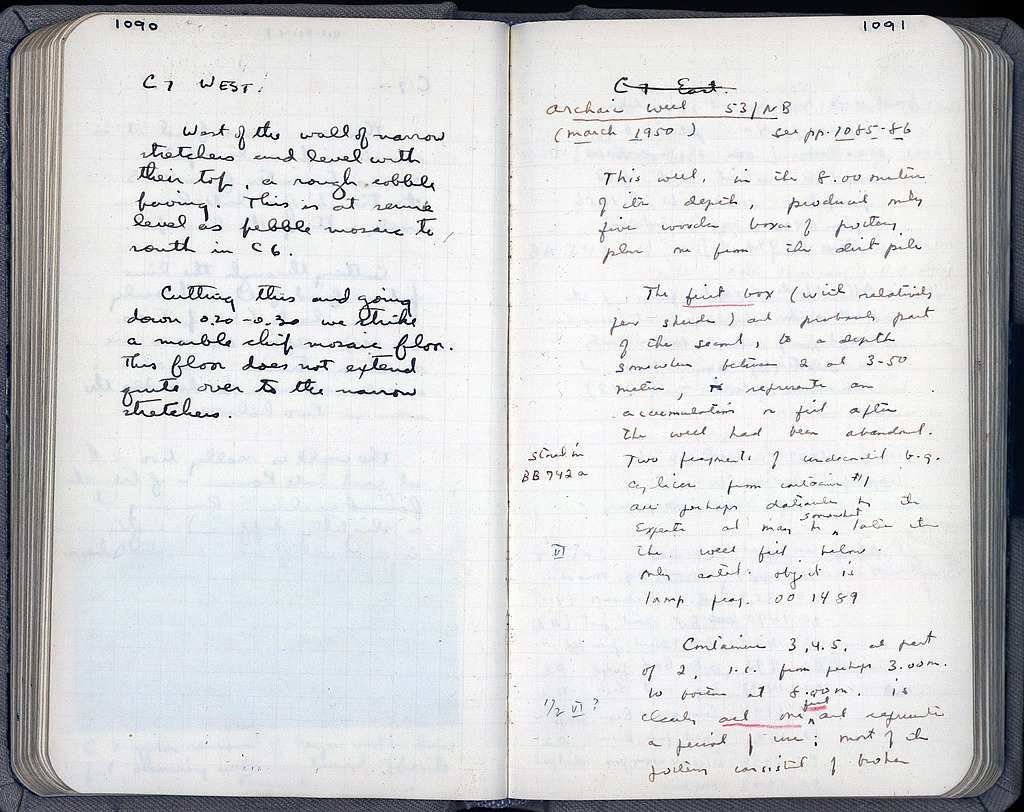 1090
C 7 WEST.
West of the wall of narrow
stretchers and level with
their top, a rough cobble
paving. This is at same
level as pebble mosaic to
south in C 6.
Cutting this and going
down 0.20 - 0.30 we strike
a marble chip mosaic floor.
This floor does not extend
quite over to the narrow
stretchers.
1091
C 7 East.
archaic well 53/NB
(march 1950) see pp. 1085-86
This well, in the 8.00 meters
of its depth, produced only
five wooden boxes of pottery
plus one from the dirt pile
The first box (with relatively
few sherds) and probably part
of the second, to a depth
somewhere between 2 and 3-50
meters, represents an
accumulation or fill after
the well had been abandoned.
stored in
BB 742a
Two fragments of b.g.
cylices from container #1
are perhaps to the
experts and may be somewhat later than
the well fill below.
VI
only catal. object is
lamp frag. 00 1489
Containers 3, 4, 5, and part
of 2, i.e. from perhaps 3.00 m.
to bottom at 8.00 m. is
1/2 VI?
clearly all one fill and represents
a period of use; most of the
pottery consisted of broken